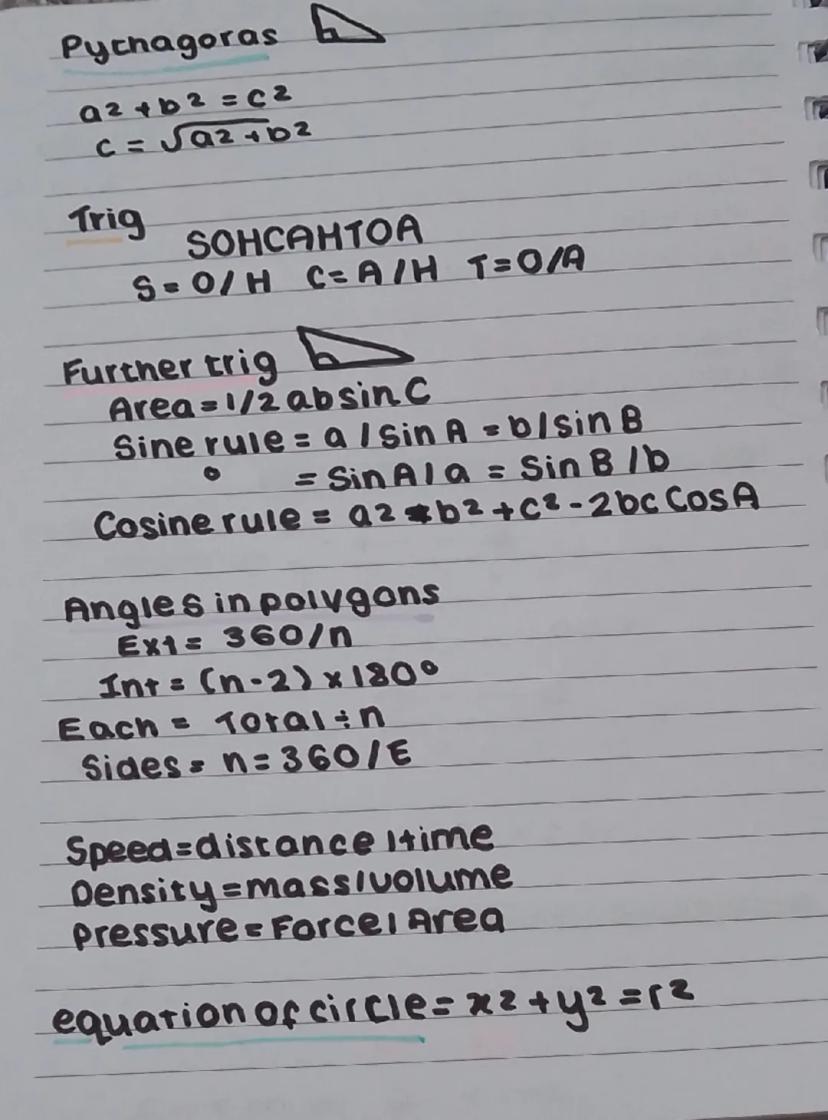 Pythagoras
a2 + b2 = c2
c = √a2 + b2
Trig
SOHCAHTOA
S = O/H C = A/H T = O/A
Further trig
Area = 1/2 absinC
Sine rule = a / sin A = b/sin B
= Sin A/a = Sin B /b
Cosine rule = a2 = b2 + c2 - 2bc Cos A
Angles in polygons
Ext = 360/n
Int = (n-2) x 180°
Each = Total ÷ n
Sides = n = 360/E
Speed = distance/time
Density = mass/volume
Pressure = Force/Area
equation of circle = x2 + y2 = r2